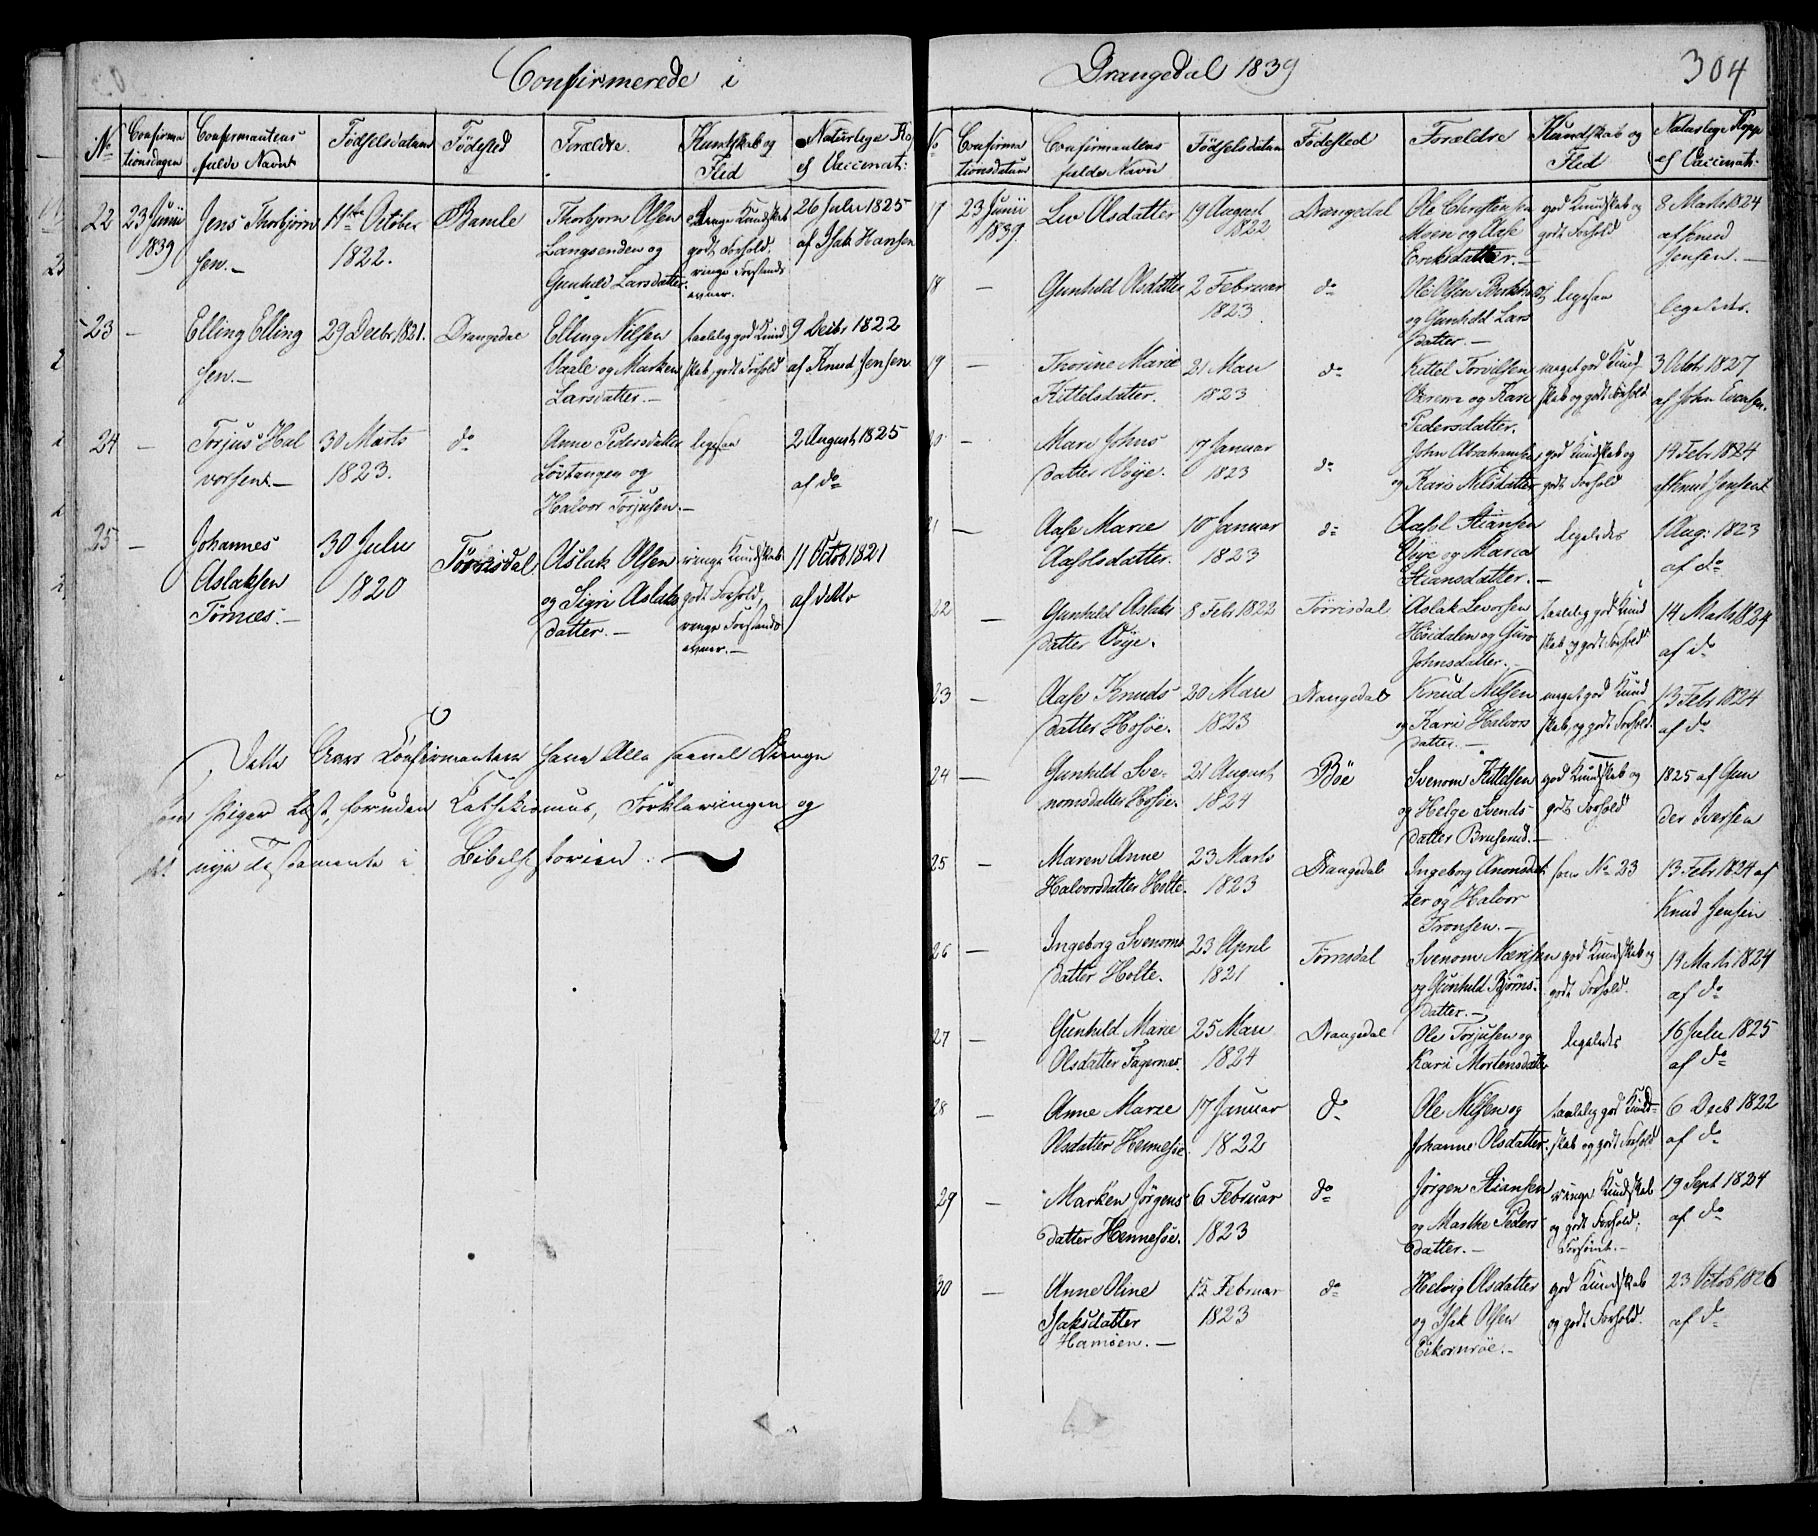 Confirmerede i
No
Confirma
tionsdagen
Confirmantens
fulde Navn
Fødselsdatum
Fødested
Forældre.
Kundskab og
Flid
Naturlige Ko
el Vaccinat:
22
23 Junii
1839
Jens Thorbjørn
sen.—
11te October
1822.
Bamle
Thorbjørn Olsen
Langsenden og
Gunhild Larsdatter.
ringe Kundskab
godt Forhold.
ringe Forstands
evner.
26 Juli 1825
af Isak Hansen
23
—
Elling Elling
sen.—
29 Decbr 1821.
Drangedal
Elling Nilsen
Vaale og Marken
Larsdatter.—
taalelig god Kund
skab, godt Forhold
9 Decbr 1822
af Knud Jensen
24
—
Torjus Hal
vorsen.—
30 Marts
1823.
do
Anne Pedersdatter
Løvtangen og
Halvor Torjusen.—
ligesaa
2 August 1825
af do
25
—
Johannes
Aslaksen
Tørnes.—
30 Julii
1820
Tørrisdal
Aslak Olsen
og Sigri Aslaks
datter.—
ringe Kundskab
godt Forhold,
ringe Forstands
evner.—
11 Octob 1821
af ditto
Dette Aars Confirmantere have Alle
læst, foruden Cathekismus, Forklaringen og
det nye Testamente i Bibelhistorien.
Drangedal 1839
304
No
Confirma
tionsdatum
Confirmantens
fulde Navn
Fødselsdatum
Fødested
Forældre
Kundskab og
Flid
Naturlige Kopp
el Vaccinat:
17
23 Junii
1839.
Liv Olsdatter
19 August
1822
Drangedal
Ole Christensen
Moen og Aase
Eriksdatter.—
god Kundskab og
godt Forhold
8 Marts 1824
af Knud
Jensen.—
18
—
Gunhild Olsdatter
2 Februar
1823
do
Ole Olsen
og Gunhild Lars
datter.—
ligesaa
ligeledes.
19
—
Thorine Marie
Kittelsdatter.
21 Mai
1823
do
Kittel Torvildsen
og Kari
Pedersdatter.
meget god Kund
skab og godt Forhold
3 Octob 1827
af John Evensen.
20
—
Mari Johns
datter Voje.
17 Januar
1823
do
John Abrahamsen
og Kari Nilsdatter
god Kundskab og
godt Forhold
14 Febr 1824
af Knud Jensen
21
—
Aase Marie
Aasolsdatter.
10 Januar
1823
do
Aasol Stiansen
Voje og Maria
Stiansdatter.—
ligeledes
1 Aug: 1823
af do
22
—
Gunhild Aslaks
datter Voje.
8 Febr 1823
Tørrisdal
Aslak Levorsen
Høidalen og Guro
Johnsdatter.—
taalelig god Kund
skab og godt Forhold
14 Marts 1824
af do
23
—
Aase Knuds
datter Hosøe.
20 Mai
1823
Drangedal
Knud Nilsen
og Kari Halvors
datter.—
meget god Kund
skab, og godt Forhold
13 Febr 1824
af do
24
—
Gunhild Sve-
nomsdatter Hosøe.
21 August
1824
Bøe
Svenom Kittelsen
og Helge Svends
datter Bruserud.—
god Kundskab og
godt Forhold
1825 af Gun
der Iversen
25
—
Maren Anne
Halvorsdatter Holte.
23 Marts
1823
Drangedal
Ingeborg Anonsdat
ter og Halvor
Tronsen.—
som No 23
13 Febr 1824 af
Knud Jensen
26
—
Ingeborg Svenoms
datter Holte.
23 April
1821
Tørrisdal
Svenom Nærisen
og Gunhild Bjørns
datter.—
god Kundskab og
godt Forhold.
19 Marts 1824
af do
27
—
Gunhild Marie
Olsdatter Fagernes.
25 Mai
1824
Drangedal
Ole Torjusen og
Kari Mortensdatter
ligeledes
16 Julii 1825
af do
28
—
Anne Marie
Olsdatter Hennesøe.
17 Januar
1822
do
Ole Nilsen og
Johanne Olsdatter.
taalelig god Kund-
skab og godt Forhold
6 Decb 1822
af do
29
—
Marken Jørgens
datter Hennesøe.
6 Februar
1823
do
Jørgen Stiansen
og Marthe Peders
datter.—
ringe Kundskab
og godt Forhold.
Forsømt.—
19 Sept 1824
af do
30
—
Anne Oline
Isaksdatter
Hamoen.—
15 Februar
1823
do
Helvig Olsdatter
og Isak Olsen
Eikornrøe.—
god Kundskab
og godt Forhold.
23 Octob 1826
af do